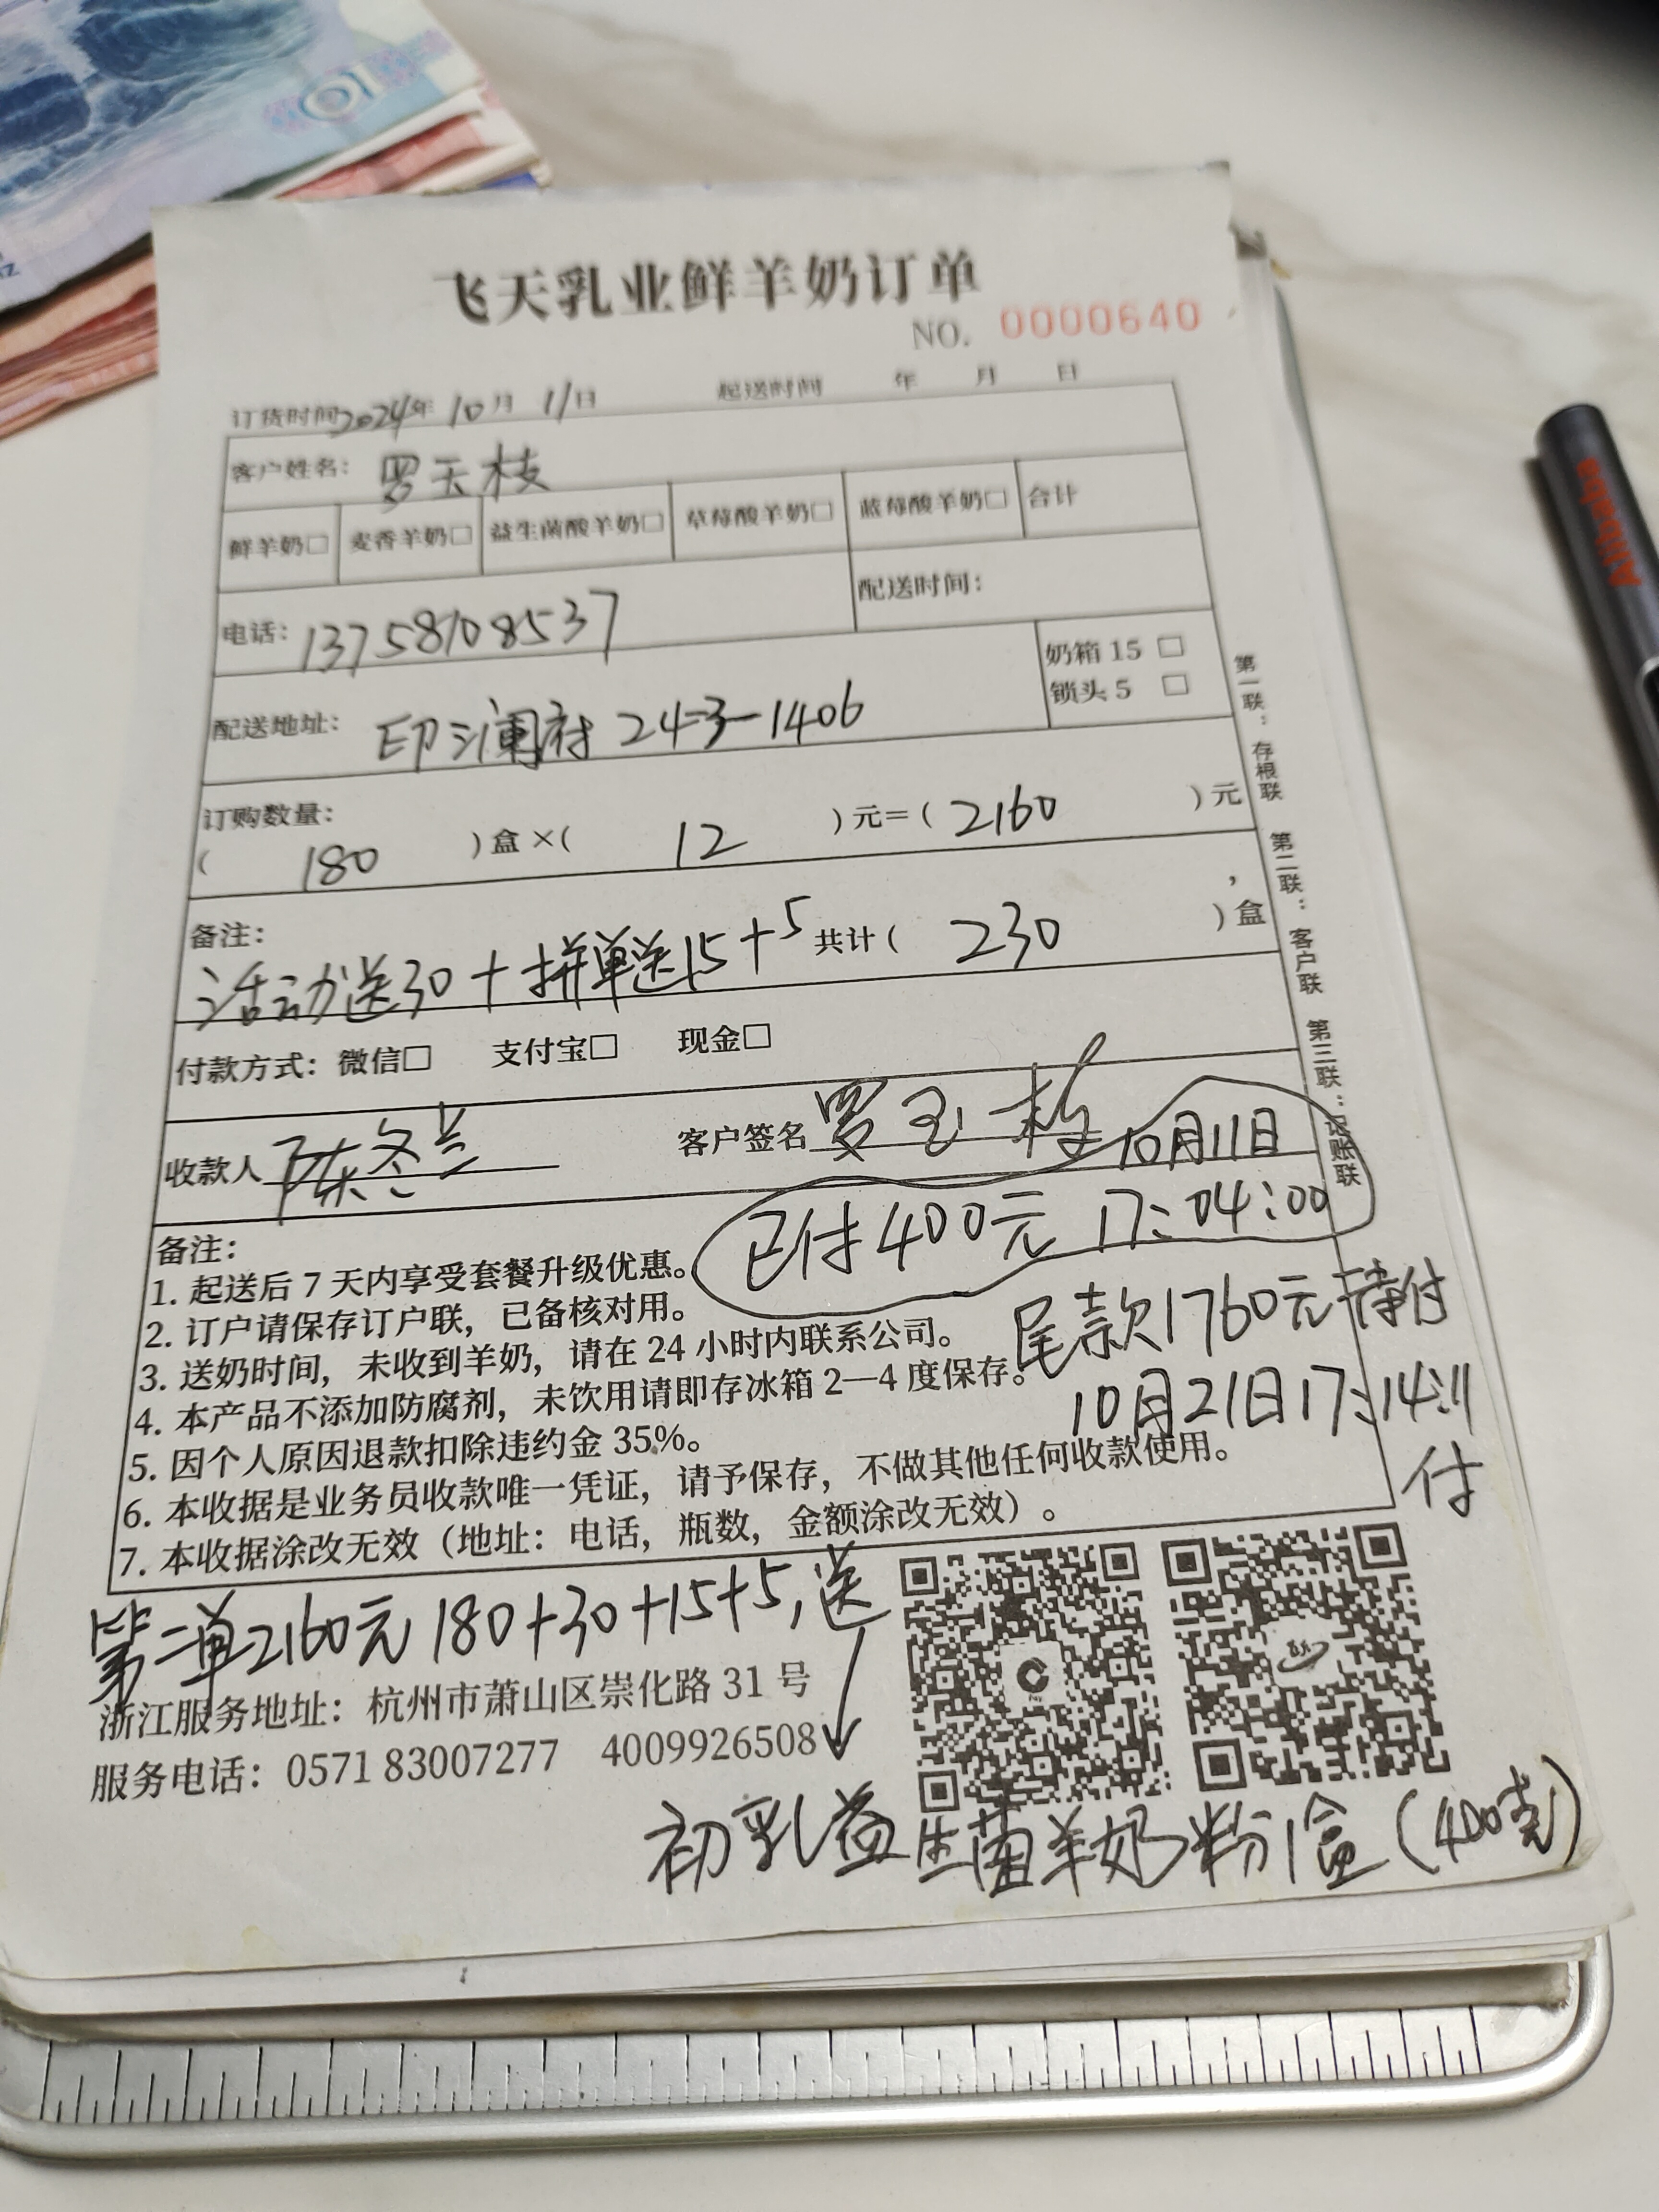 10
飞天乳业鲜羊奶订单
NO. 0000640
订货时间2024年10月11日 起送时间 年 月 日
客户姓名：罗玉枝
鲜羊奶□ 麦香羊奶□ 益生菌酸羊奶□ 草莓酸羊奶□ 蓝莓酸羊奶□ 合计
电话：13758108537 配送时间：
配送地址：印江澜府24-3-1406 奶箱 15 □
锁头 5 □
订购数量：
（ 180 ）盒×（ 12 ）元=（ 2160 ）元，
备注：
活动送30+拼单送15+5 共计（ 230 ）盒
付款方式：微信□ 支付宝□ 现金□
收款人 陈冬兰 客户签名 罗玉枝 10月11日
已付400元 17:04:00
尾款1760元待付
10月21日17:14:11
付
备注：
1. 起送后 7 天内享受套餐升级优惠。
2. 订户请保存订户联，已备核对用。
3. 送奶时间，未收到羊奶，请在 24 小时内联系公司。
4. 本产品不添加防腐剂，未饮用请即存冰箱 2—4 度保存。
5. 因个人原因退款扣除违约金 35%。
6. 本收据是业务员收款唯一凭证，请予保存，不做其他任何收款使用。
7. 本收据涂改无效（地址：电话，瓶数，金额涂改无效）。
第一联：存根联 第二联：客户联 第三联：记账联
第二单2160元 180+30+15+5，送
浙江服务地址：杭州市萧山区崇化路 31 号
服务电话：0571 83007277 4009926508
初乳益生菌羊奶粉1盒（400克）
Alibaba